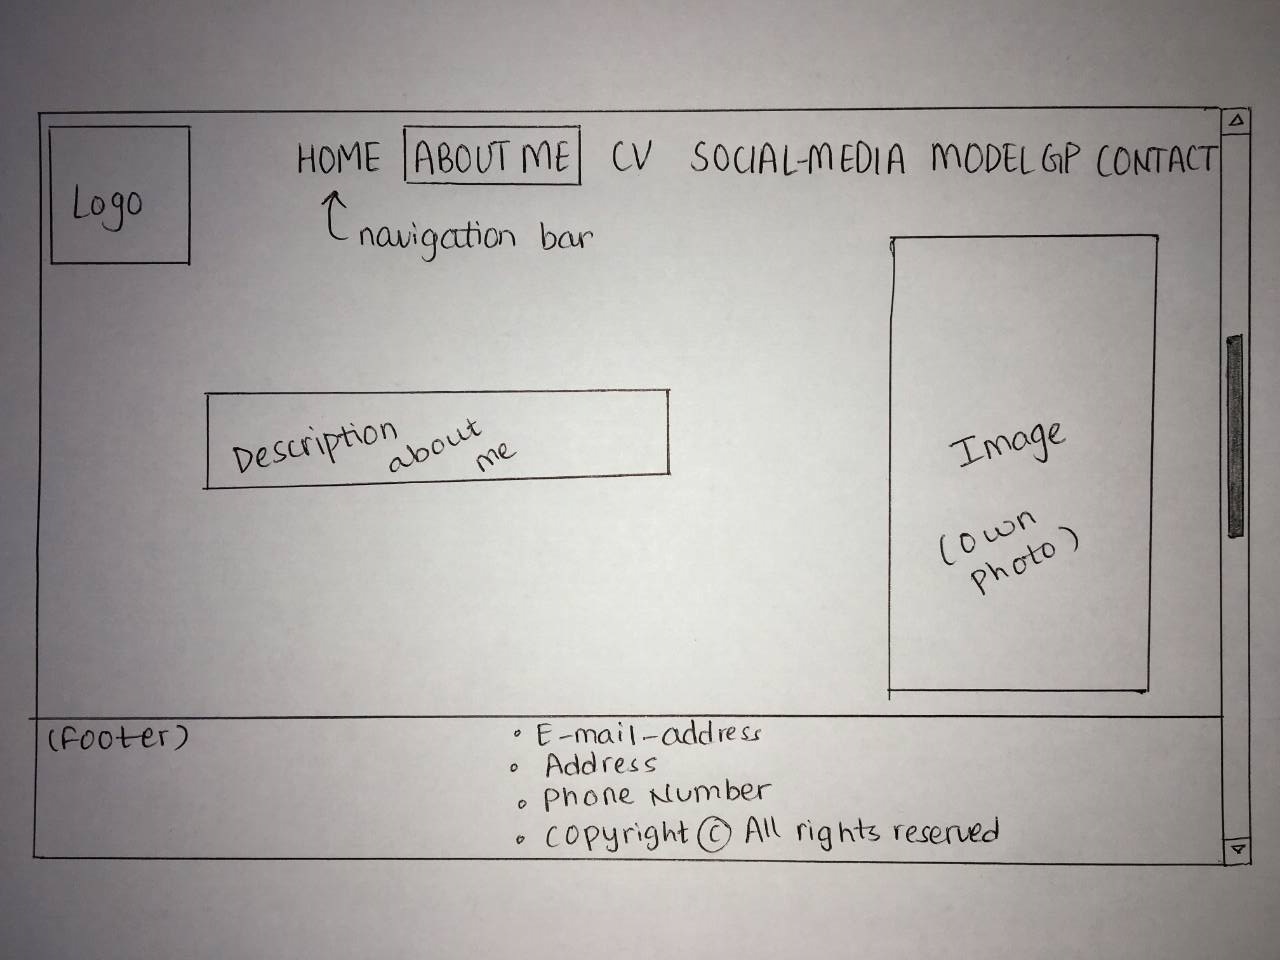 HOME ABOUT ME CV SOCIAL-MEDIA MODEL GP CONTACT
Logo
navigation bar
Description
about
me
Image
(own
photo)
(Footer)
• E-mail-address
• Address
• Phone Number
• Copyright © All rights reserved